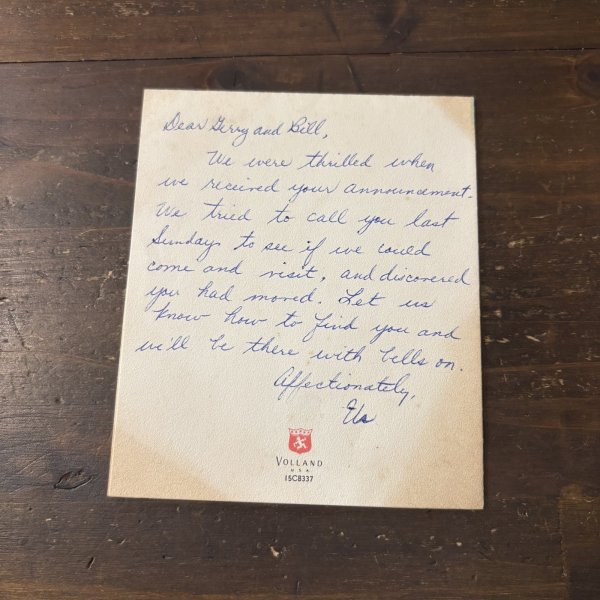 Dear Gerry and Bill,
We were thrilled when
we received your announcement.
We tried to call you last
Sunday to see if we could
come and visit, and discovered
you had moved. Let us
know how to find you and
we'll be there with bells on.
Affectionately,
Us
VOLLAND
U.S.A.
15CB337